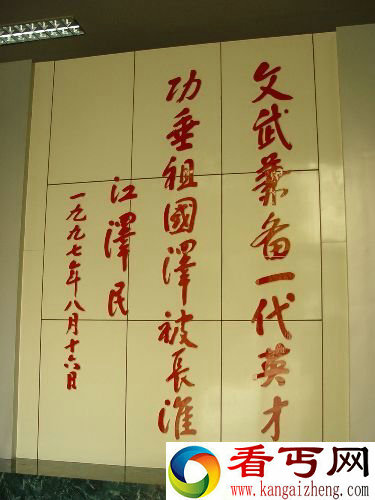 文武兼备一代英才
功垂祖國澤被長淮
江澤民
一九九七年八月十六日
看丐网
www.kangaizheng.com